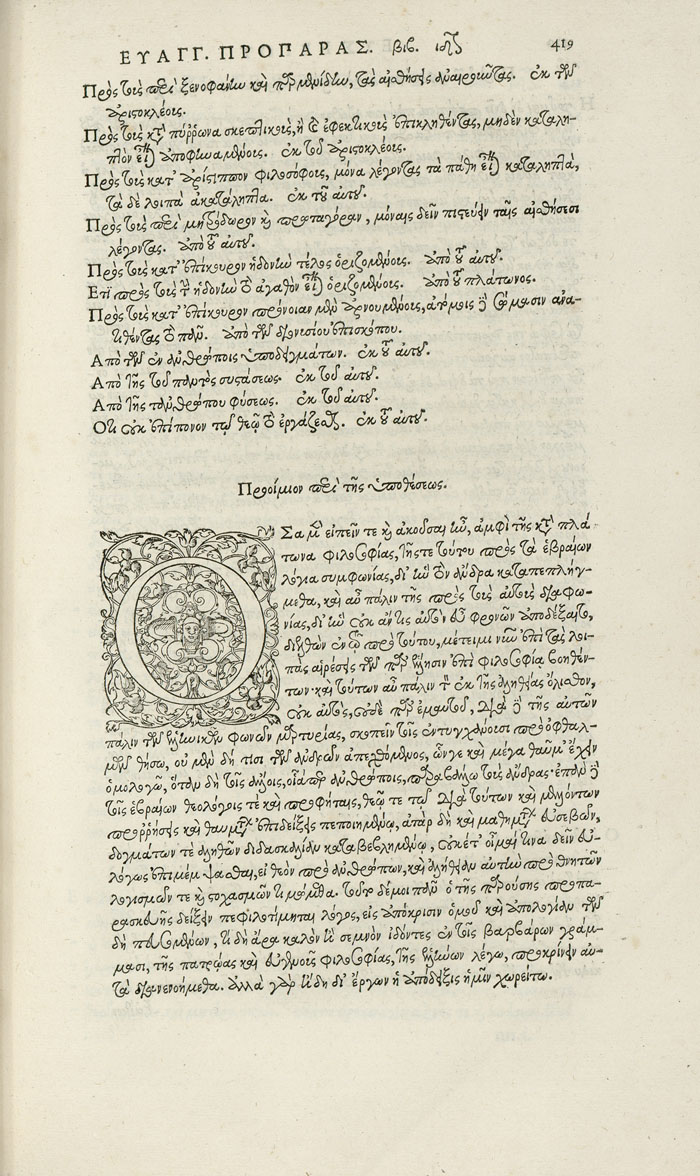 ΕΥΑΓΓ. ΠΡΟΠΑΡΑΣ. βιβ. 419
Πρὸς τοὺς περὶ ξενοφάνην καὶ παρμενίδην, τὰς αἰσθήσεις ἀναιροῦντας. ἐκ τῶν
ἀριστοκλέοις.
Πρὸς τοὺς κατὰ πύρρωνα σκεπτικοὺς, ἢ ἐφεκτικοὺς ἐπικληθέντας, μηδὲν καταλη-
πτὸν εἶναι ἀποφηναμένοις. ἐκ τοῦ ἀριστοκλέοις.
Πρὸς τοὺς κατ' ἀρίστιππον φιλοσόφοις, μόνα λέγοντας τὰ πάθη εἶναι καταληπτὰ,
τὰ δὲ λοιπὰ ἀκατάληπτα. ἐκ τοῦ αὐτοῦ.
Πρὸς τοὺς περὶ μητρόδωρον καὶ πρωταγόραν, μόναις δεῖν πιστεύειν ταῖς αἰσθήσεσι
λέγοντας. ἀπὸ τοῦ αὐτοῦ.
Πρὸς τοὺς κατ' ἐπίκουρον ἡδονὴν τέλος ὁριζομένοις. ἀπὸ τοῦ αὐτοῦ.
Ετι πρὸς τοὺς τὴν ἡδονὴν τὸ ἀγαθὸν εἶναι ὁριζομένοις. ἀπὸ τοῦ πλάτωνος.
Πρὸς τοὺς κατ' ἐπίκουρον πρόνοιαν μὲν ἀρνουμένοις, ἀτόμοις δὲ σώμασιν ἀνα-
τιθέντας τὸ πᾶν. ἀπὸ τῶν διονυσίου ἐπισκόπου.
Απὸ τῶν ἐν ἀνθρώποις ὑποδειγμάτων. ἐκ τοῦ αὐτοῦ.
Απὸ τῆς τοῦ παντὸς συστάσεως. ἐκ τοῦ αὐτοῦ.
Απὸ τῆς τοῦ ἀνθρώπου φύσεως. ἐκ τοῦ αὐτοῦ.
Οτι οὐκ ἐπίπονον τῷ θεῷ τὸ ἐργάζεσθαι. ἐκ τοῦ αὐτοῦ.
Προοίμιον περὶ τῆς ὑποθέσεως.
ΟΣΑ μὲν εἰπεῖν τε καὶ ἀκοῦσαι ἦν, ἀμφὶ τῆς κατὰ πλά-
τωνα φιλοσοφίας, τῆς τε τούτου πρὸς τὰ ἑβραίων
λόγια συμφωνίας, δι' ἣν τὸν ἄνδρα καταπεπλήγ-
μεθα, καὶ αὖ πάλιν τῆς πρὸς τοὺς αὐτοὺς διαφω-
νίας, δι' ἣν οὐκ ἄν τις αὐτὸν εὖ φρονῶν ἀποδέξαιτο,
διελθὼν ἐν τῷ πρὸ τούτου, μέτειμι νῦν ἐπὶ τὰς λοι-
πὰς αἱρέσεις τῶν παρ' ἕλλησιν ἐπὶ φιλοσοφίᾳ βοηθέν-
των· καὶ τούτων αὖ πάλιν τὸν ἐκ τῆς ἀληθείας ὄλισθον,
οὐκ αὐτὸς, οὐδὲ παρ' ἐμαυτοῦ, διὰ δὲ τῆς αὐτῶν
πάλιν τῶν ἑλληνικῶν φωνῶν μαρτυρίας, σκοπεῖν τοῖς ἐντυγχάνοισι πρὸ ὀφθαλ-
μῶν θήσω, οὐ μὲν δή τισι τῶν ἀνδρῶν ἀπεχθόμενος, ὧνγε καὶ μέγα θαῦμ' ἔχειν
ὁμολογῶ, ὅταν δὴ τοῖς ἄλλοις, οἷάπερ ἀνθρώποις, παραβάλω τοὺς ἄνδρας· ἐπὰν δὲ
τοῖς ἑβραίων θεολόγοις τὲ καὶ προφήταις, θεῷ τε τῷ διὰ τούτων καὶ μελλόντων
προρρήσεις καὶ θαυμάτων ἐπιδείξεις πεποιημένῳ, ἀτὰρ δὴ καὶ μαθημάτων εὐσεβῶν,
δογμάτων τε ἀληθῶν διδασκαλίαν καταβεβλημένῳ, οὐκέτ' οἶμαί τινα δεῖν εὐ-
λόγως ἐπιμέμψασθαι, εἰ θεὸν πρὸ ἀνθρώπων, καὶ ἀλήθειαν αὐτὴν πρὸ θνητῶν
λογισμῶν τε καὶ στοχασμῶν τιμώμεθα. ταῦτα δέ μοι πάντα ὁ τῆς παρούσης προπα-
ρασκευῆς δείξειν πεφιλοτίμηται λόγος, εἰς ἀπόκρισιν ὁμοῦ καὶ ἀπολογίαν τῶν
δὴ πευσομένων, τί δὴ ἄρα καλὸν ἢ σεμνὸν ἰδόντες ἐν τοῖς βαρβάρων γράμ-
μασι, τῆς πατρῴας καὶ εὐγενοῖς φιλοσοφίας, τῆς ἑλλήνων λέγω, προκρίνειν αὐ-
τὰ διανενοήμεθα. ἀλλὰ γὰρ ἤδη δι' ἔργων ἡ ἀπόδειξις ἡμῖν χωρείτω.